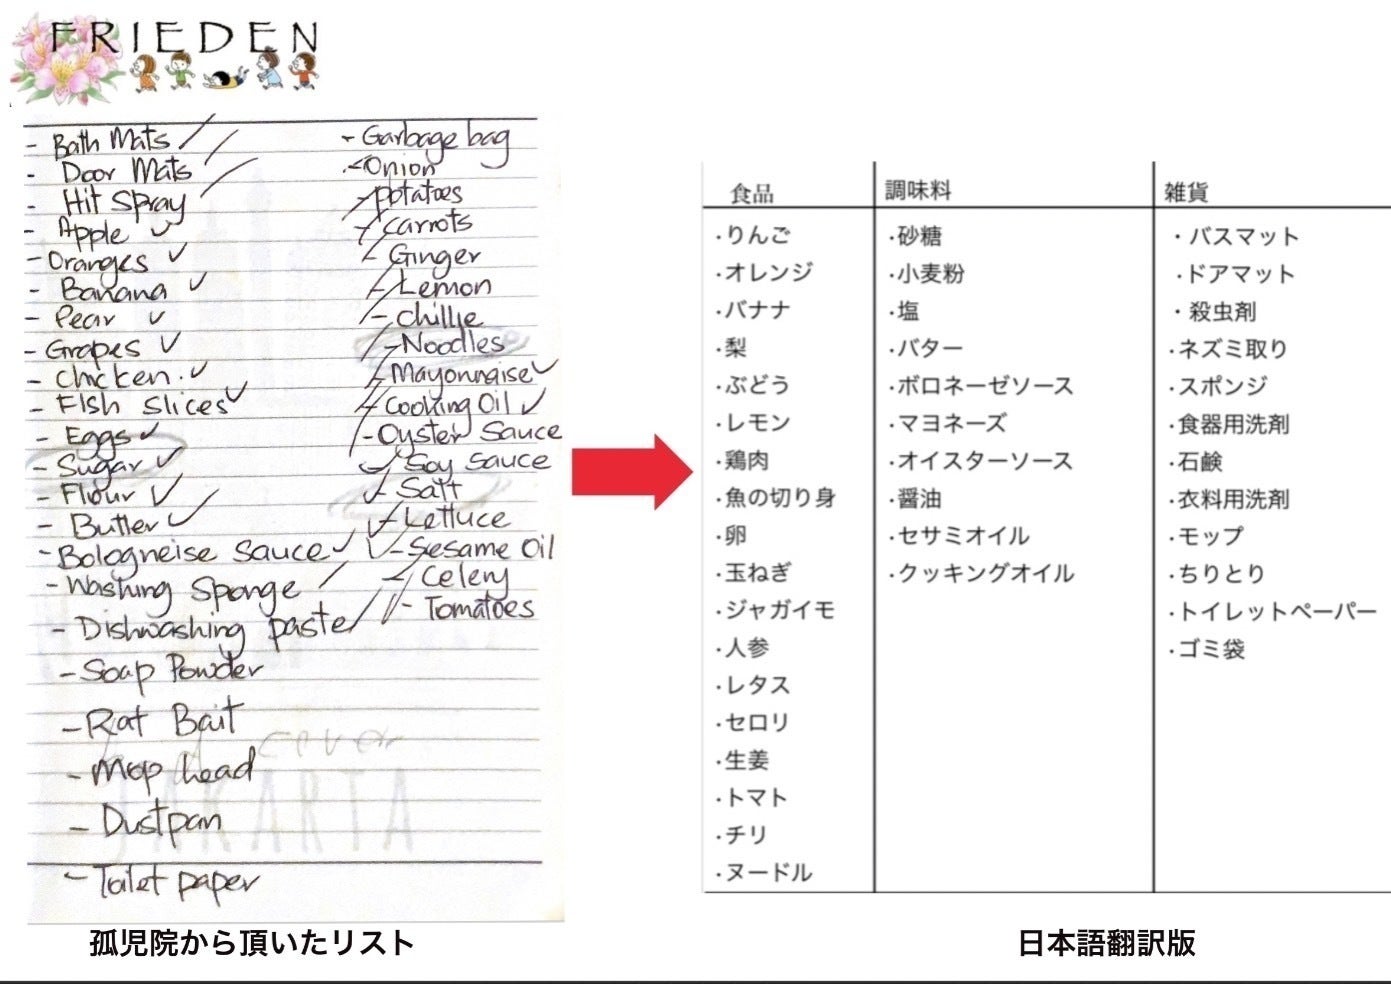 FRIEDEN
- Bath Mats
- Door Mats
- Hit Spray
- Apple ✓
- Oranges ✓
- Banana ✓
- Pear ✓
- Grapes ✓
- Chicken. ✓
- Fish Slices ✓
- Eggs ✓
- Sugar ✓
- Flour ✓
- Butter ✓
- Bologneise Sauce ✓
- Washing Sponge
- Dishwashing paste
- Soap Powder
- Rat Bait
- Mop head
- Dustpan
- Toilet paper
- Garbage bag
- Onion
- potatoes
- carrots
- Ginger
- Lemon
- chillie
- Noodles
- Mayonnaise ✓
- Cooking Oil ✓
- Oyster Sauce
- Soy Sauce
- Salt
- Lettuce
- Sesame Oil
- Celery
- Tomatoes
cover
JAKARTA
孤児院から頂いたリスト
食品
・りんご
・オレンジ
・バナナ
・梨
・ぶどう
・レモン
・鶏肉
・魚の切り身
・卵
・玉ねぎ
・ジャガイモ
・人参
・レタス
・セロリ
・生姜
・トマト
・チリ
・ヌードル
調味料
・砂糖
・小麦粉
・塩
・バター
・ボロネーゼソース
・マヨネーズ
・オイスターソース
・醤油
・セサミオイル
・クッキングオイル
雑貨
・バスマット
・ドアマット
・殺虫剤
・ネズミ取り
・スポンジ
・食器用洗剤
・石鹸
・衣料用洗剤
・モップ
・ちりとり
・トイレットペーパー
・ゴミ袋
日本語翻訳版